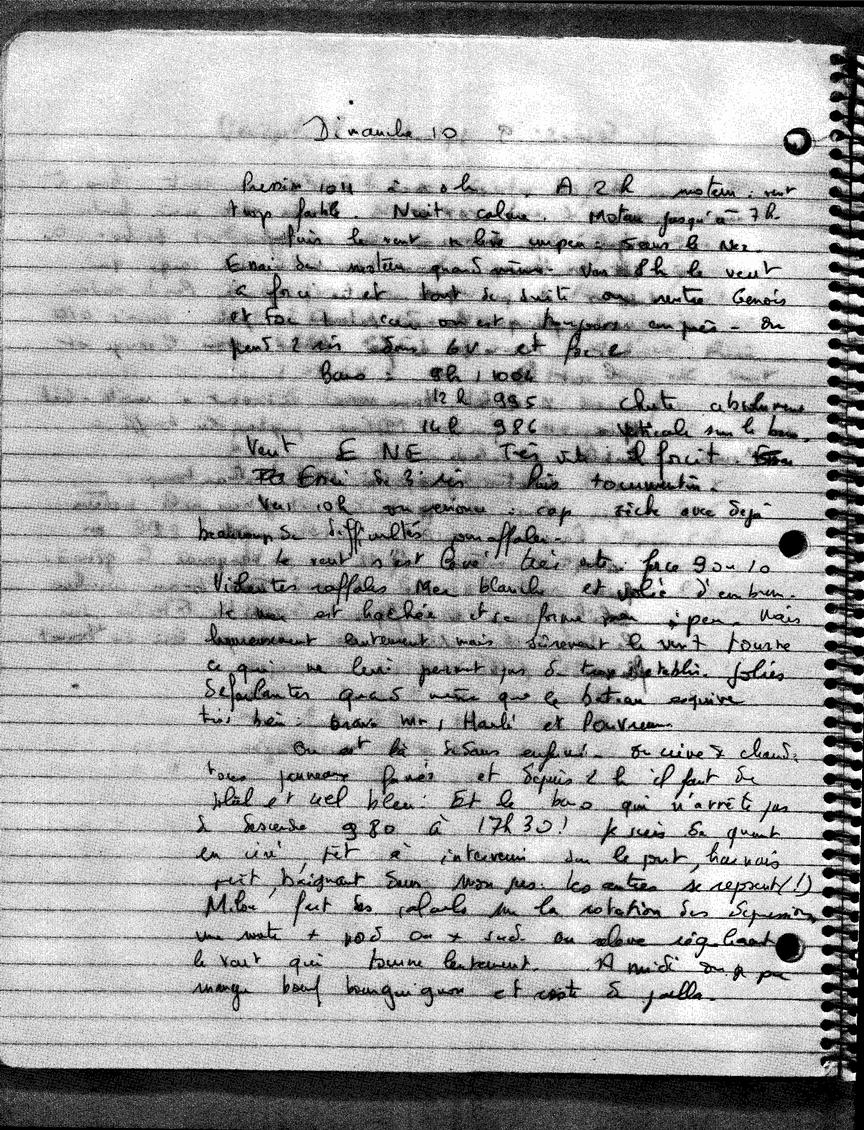 Dimanche 10
Pression 1014 à 0h. A 2h moteur : vent
trop faible. Nuit calme. Moteur jusqu'à 7h.
Puis le vent se lève un peu : dans le Nez.
Essai du moteur quand même. Vers 8h le vent
a forci et tout de suite on rentre Genois
et Foc on est toujours au près - On
prend 2 ris dans GV et force
Baro : 8h 1004
12h 995 chute absolument
14h 986 verticale sur le baro.
Vent E NE Très vite il forcit.
Essai de 3 ris Puis tourmentin.
Vers 10h on renonce : cap sèche avec déjà
beaucoup de difficultés pour affaler.
Le vent s'est levé très vite : force 9 ou 10
Violentes raffales Mer blanche et volée d'embrun.
La mer est hachée et se forme peu à peu. Mais
heureusement lentement mais sûrement le vent tourne
ce qui ne lui permet pas de trop s'établir.
déferlantes quand même que le bateau esquive
très bien : bravo Mr, Harlé et Pouvreau
On est là dedans enfermé. On crève de chaud :
tous panneaux fermés et depuis 2h il fait du
soleil et ciel bleu : Et le baro qui n'arrête pas
de descendre 980 à 17h30! Je suis de quart
en ciré, prêt à intervenir sur le pont, harnais
prêt, baignant dans mon jus. Les autres se reposent (!)
Milou fait des calculs sur la rotation des dépressions,
une route + nord ou + sud. On relève régulièrement
le vent qui tourne lentement. A midi on a pu
manger bœuf bourguignon et reste de paella.